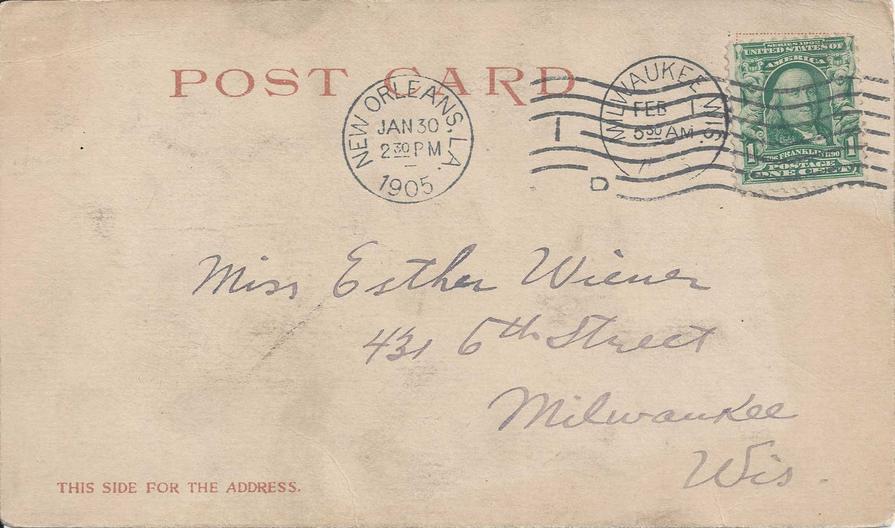 POST CARD
NEW ORLEANS, LA.
JAN 30
2 30 PM
1905
MILWAUKEE WIS.
FEB 1
5 30 AM
1
D
SERIES 1902
UNITED STATES OF
AMERICA
FRANKLIN
1 POSTAGE 1
ONE CENT
Miss Esther Wiener
431 6th Street
Milwaukee
Wis.
THIS SIDE FOR THE ADDRESS.